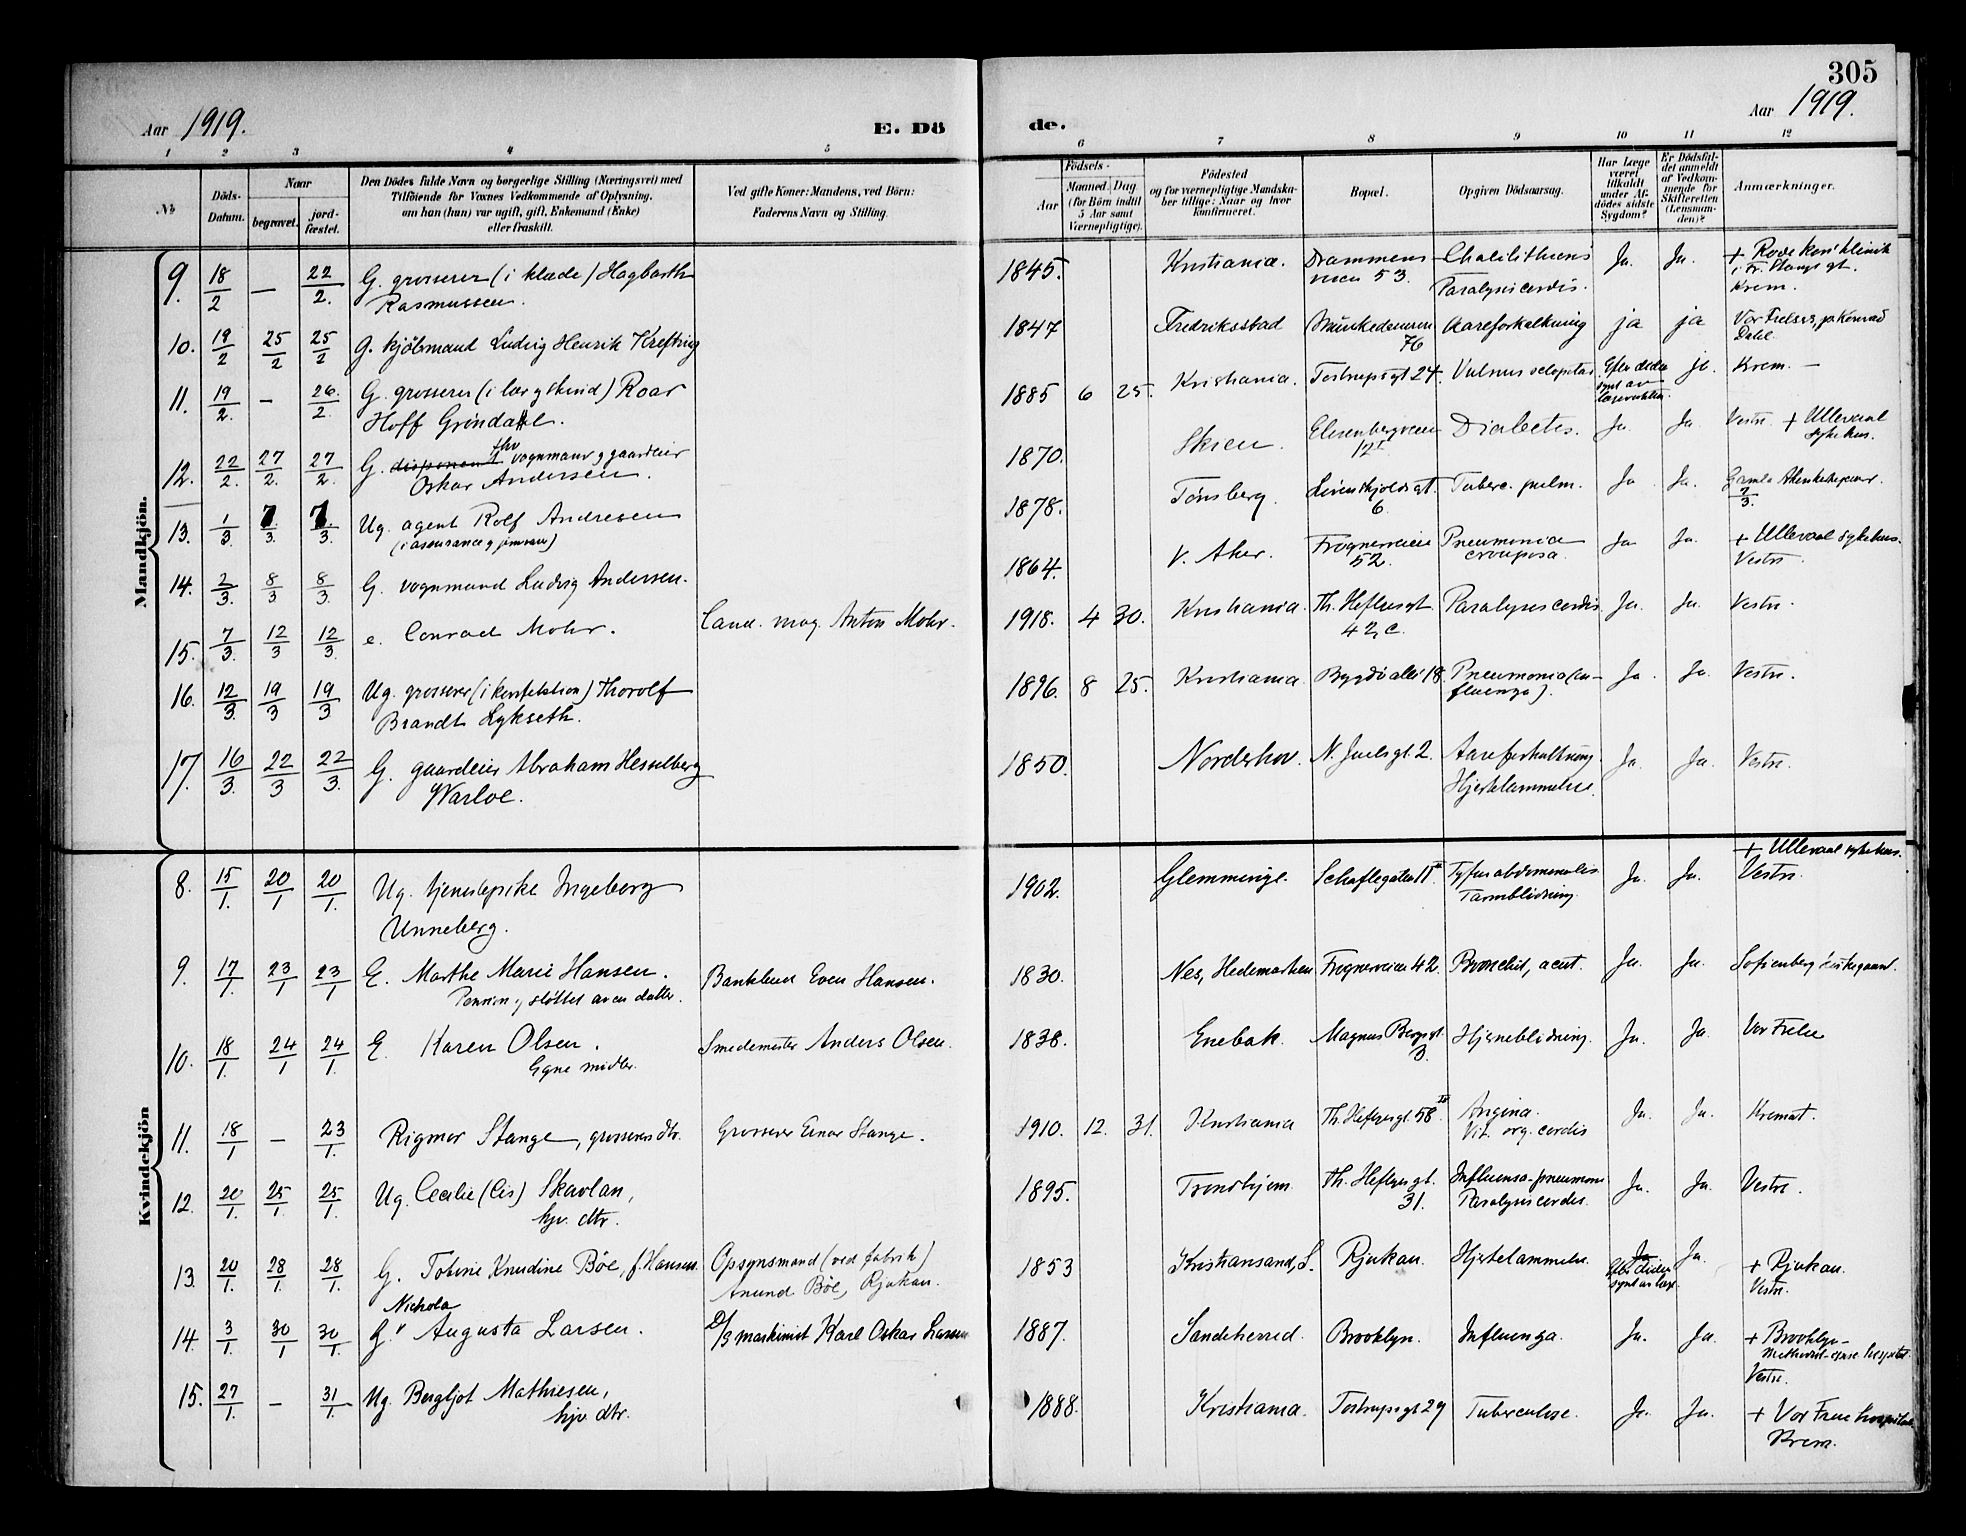 305
Aar 1919.
E. Dö
de.
Aar 1919.
1 2 3 4 5 6 7 8 9 10 11 12
No
Döds-Datum.
Naar
begravet.
jord-fæstet.
Den Dödes fulde Navn og borgerlige Stilling (Næringsvei) med
Tilföiende for Voxnes Vedkommende af Oplysning,
om han (hun) var ugift, gift, Enkemand (Enke)
eller fraskilt.
Ved gifte Koner: Mandens, ved Börn:
Faderens Navn og Stilling.
Födsels-
Aar
Maaned. Dag
(for Börn indtil
5 Aar samt
Værnepligtige).
Födested
og for værnepligtige Mandska-
ber tillige: Naar og hvor
konfirmeret.
Bopæl.
Opgiven Dödsaarsag.
Har Læge
været
tilkaldt
under Af-
dödes sidste
Sygdom?
Er Dödsfal-
det anmeldt
af Vedkom-
mende for
Skifteretten
(Lensman-
den)?
Anmærkninger.
Mandkjön.
9. 18/2 — 22/2. G. grosserer (i klæde) Hagbarth
Rasmussen. 1845. Kristiania. Drammens-
veien 53. Paralysis cordis. Ja. Ja. + Røde Kors' Klinik
Krem.
10. 19/2 25/2 25/2 G. kjøbmand Ludvig Henrik Krefting 1847 Fredriksstad Munkedamsvn
76 Aareforkalkning ja ja Vor Frelser, p. Konrad
Dahl.
11. 19/2. — 26./2. G. grosserer (i lær g skind) Roar
Hoff Grøndahl. 1885 6 25. Kristiania. Tostrupsgt 24 Vulnus Efter døden
synt av ja. Krem. —
12. 22/2. 27/2. 27/2. G. disponent fhv vognmann g gaardeier
Oskar Andersen. 1870. Skien. Elisenbergveien
12 I Diabetes. Ja Ja. Vestre + Ullevaal
sykehus.
13. 1/3 7/3. 7/3. Ug. agent Rolf Andresen
1878. Tønsberg. Løvenskjoldsgt.
6. Tuberc. pulm. Ja Ja. Gamle
7/3.
14. 2/3. 8/3 8/3. G. vognmand Ludvig Andersen. 1864. V. Aker. Frognerveien
52. Pneumonia
crouposa. Ja Ja. + Ullevaal sykehus.
Vestre
15. 7/3. 12/3 12/3. e. Conrad Mohr. Cand. mag. Anton Mohr. 1918. 4 30. Kristiania. Th. Heftyesgt
42, c. Paralysis cordis Ja. Ja. Vestre.
16. 12/3. 19/3 19/3 Ug. grosserer (i Thorolf
Brandt Lykseth. 1896. 8 25. Kristiania. Bygdø allé 18. Pneumonia (in-
fluenza). Ja. Ja. Vestre.
17. 16/3. 22/3 22/3. G. gaardeier Abraham Hesselberg
Warloe. 1850. Norderhov. N. Juelsgt. 2. Aareforkalkning.
Hjertelammelse. Ja. Ja. Vestre.
Kvindekjön
8. 15/1. 20/1 20/1. Ug. tjenestepike Ingeborg
Unneberg. 1902. Glemminge. Tyfus abdominalis
Tarmblødning. Ja. Ja. + Ullevaal sykehus.
Vestre.
9. 17/1. 23/1 23/1 E. Marthe Marie Hansen.
Pension g støttet av en datter. Bankbud Even Hansen. 1830. Nes, Hedemarken Frognerveien 42. Bronchit, acut. Ja. Ja. Sofienberg
10. 18/1. 24/1 24/1. E. Karen Olsen.
Egne midler. Smedemester Anders Olsen. 1838. Enebak. Magnus Bergsgt.
3. Hjerneblødning. Ja. Ja. Vor Frelse
11. 18/1 — 23/1. Rigmor Stange, grosserers dtr. Grosserer Einar Stange. 1910. 12. 31. Kristiania Th. Heftyesgt. 58 IV Angina.
Vit. org. cordis Ja. Ja. Kremat.
12. 20/1. 25/1. 25/1. Ug. Cecilie (Cis) Skavlan,
hjv. dtr. 1895. Trondhjem Th. Heftyesgt.
31. Influensa-pneumoni
Paralysis cordis. Ja. Ja. Vestre.
13. 20/1. 28/1. 28/1. G. Tobine Knudine Böe, f. Hansen. Opsynsmand (ved fabrik)
Anund Böe, Rjukan. 1853 Kristiansand, S. Rjukan. Hjertelammelse. Ja
efter døden
synt av læge. Ja. + Rjukan.
Vestre.
14. 3/1. 30/1 30/1. Nichola
G. Augusta Larsen. D/S maskinist Karl Oskar Larsen 1887. Sandeherred. Brooklyn. Influenza. Ja. Ja. + Brooklyn-
Vestre.
15. 27/1. — 31/1. Ug. Bergljot Mathiesen,
hjv. dtr. 1888. Kristiania. Tostrupsgt 29 Tuberculose. Ja. Ja. + Vor Frue hospital
Krem.